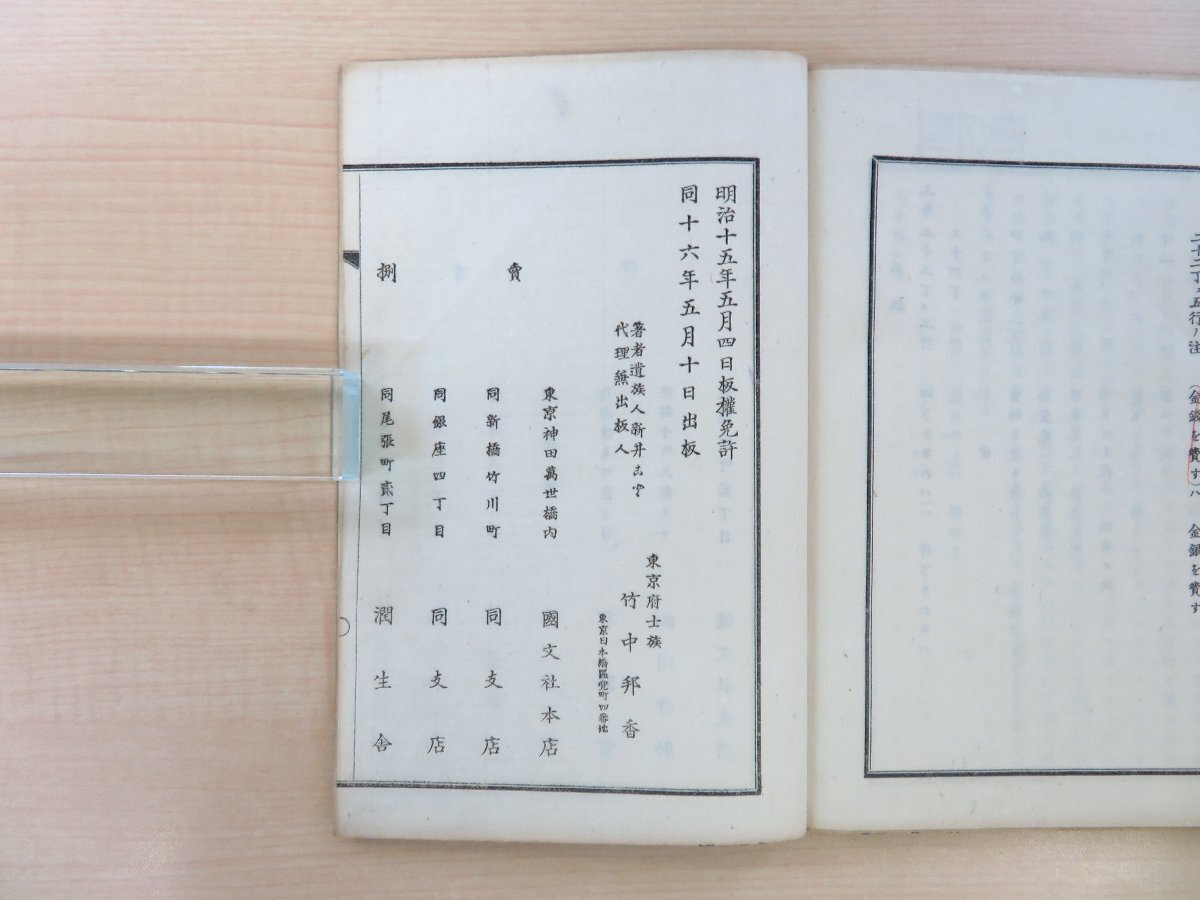 二十二丁ノ五行ハ注 (金銭を費す)ハ 金銀を費す
明治十五年五月四日板權免許
同十六年五月十日出板
著者遺族人新井
代理無出板人
東京府士族
竹中邦香
東京日本橋區兜町四番地
賣
捌
東京神田萬世橋內 國文社本店
同新橋竹川町 同支店
同銀座四丁目 同支店
同尾張町貳丁目 潤生舎